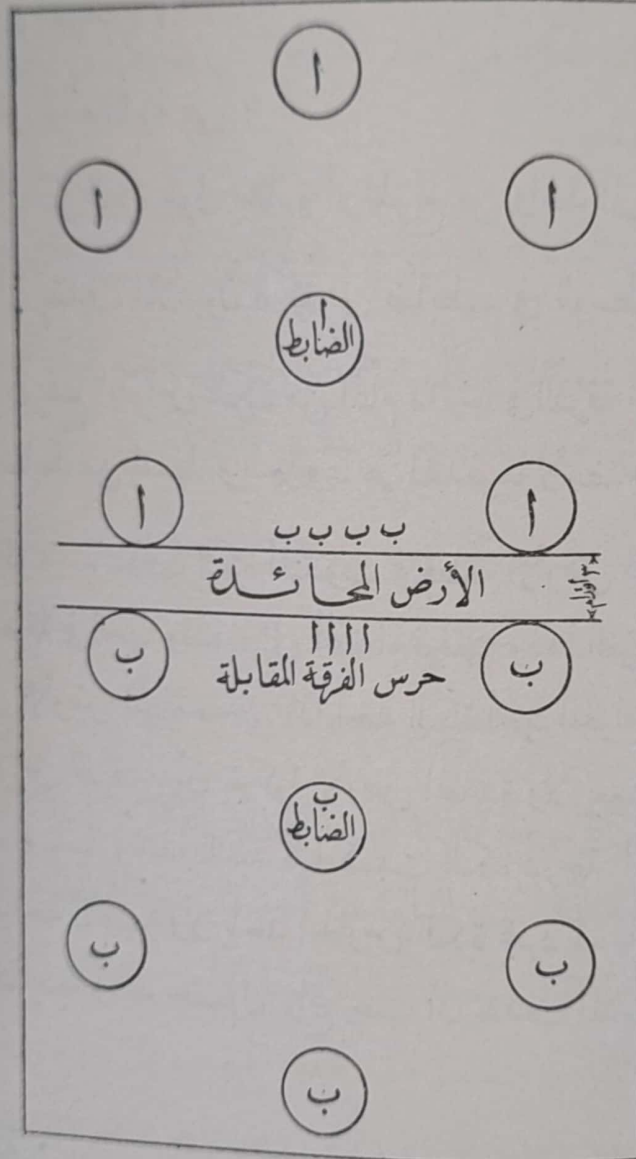 ا
ا ا
ا
الضابط
ا ا
ب ب ب ب
الأرض المحائدة
٣ أقدام
ا ا ا ا
ب ب
حرس الفرقة المقابلة
ب
الضابط
ب ب
ب